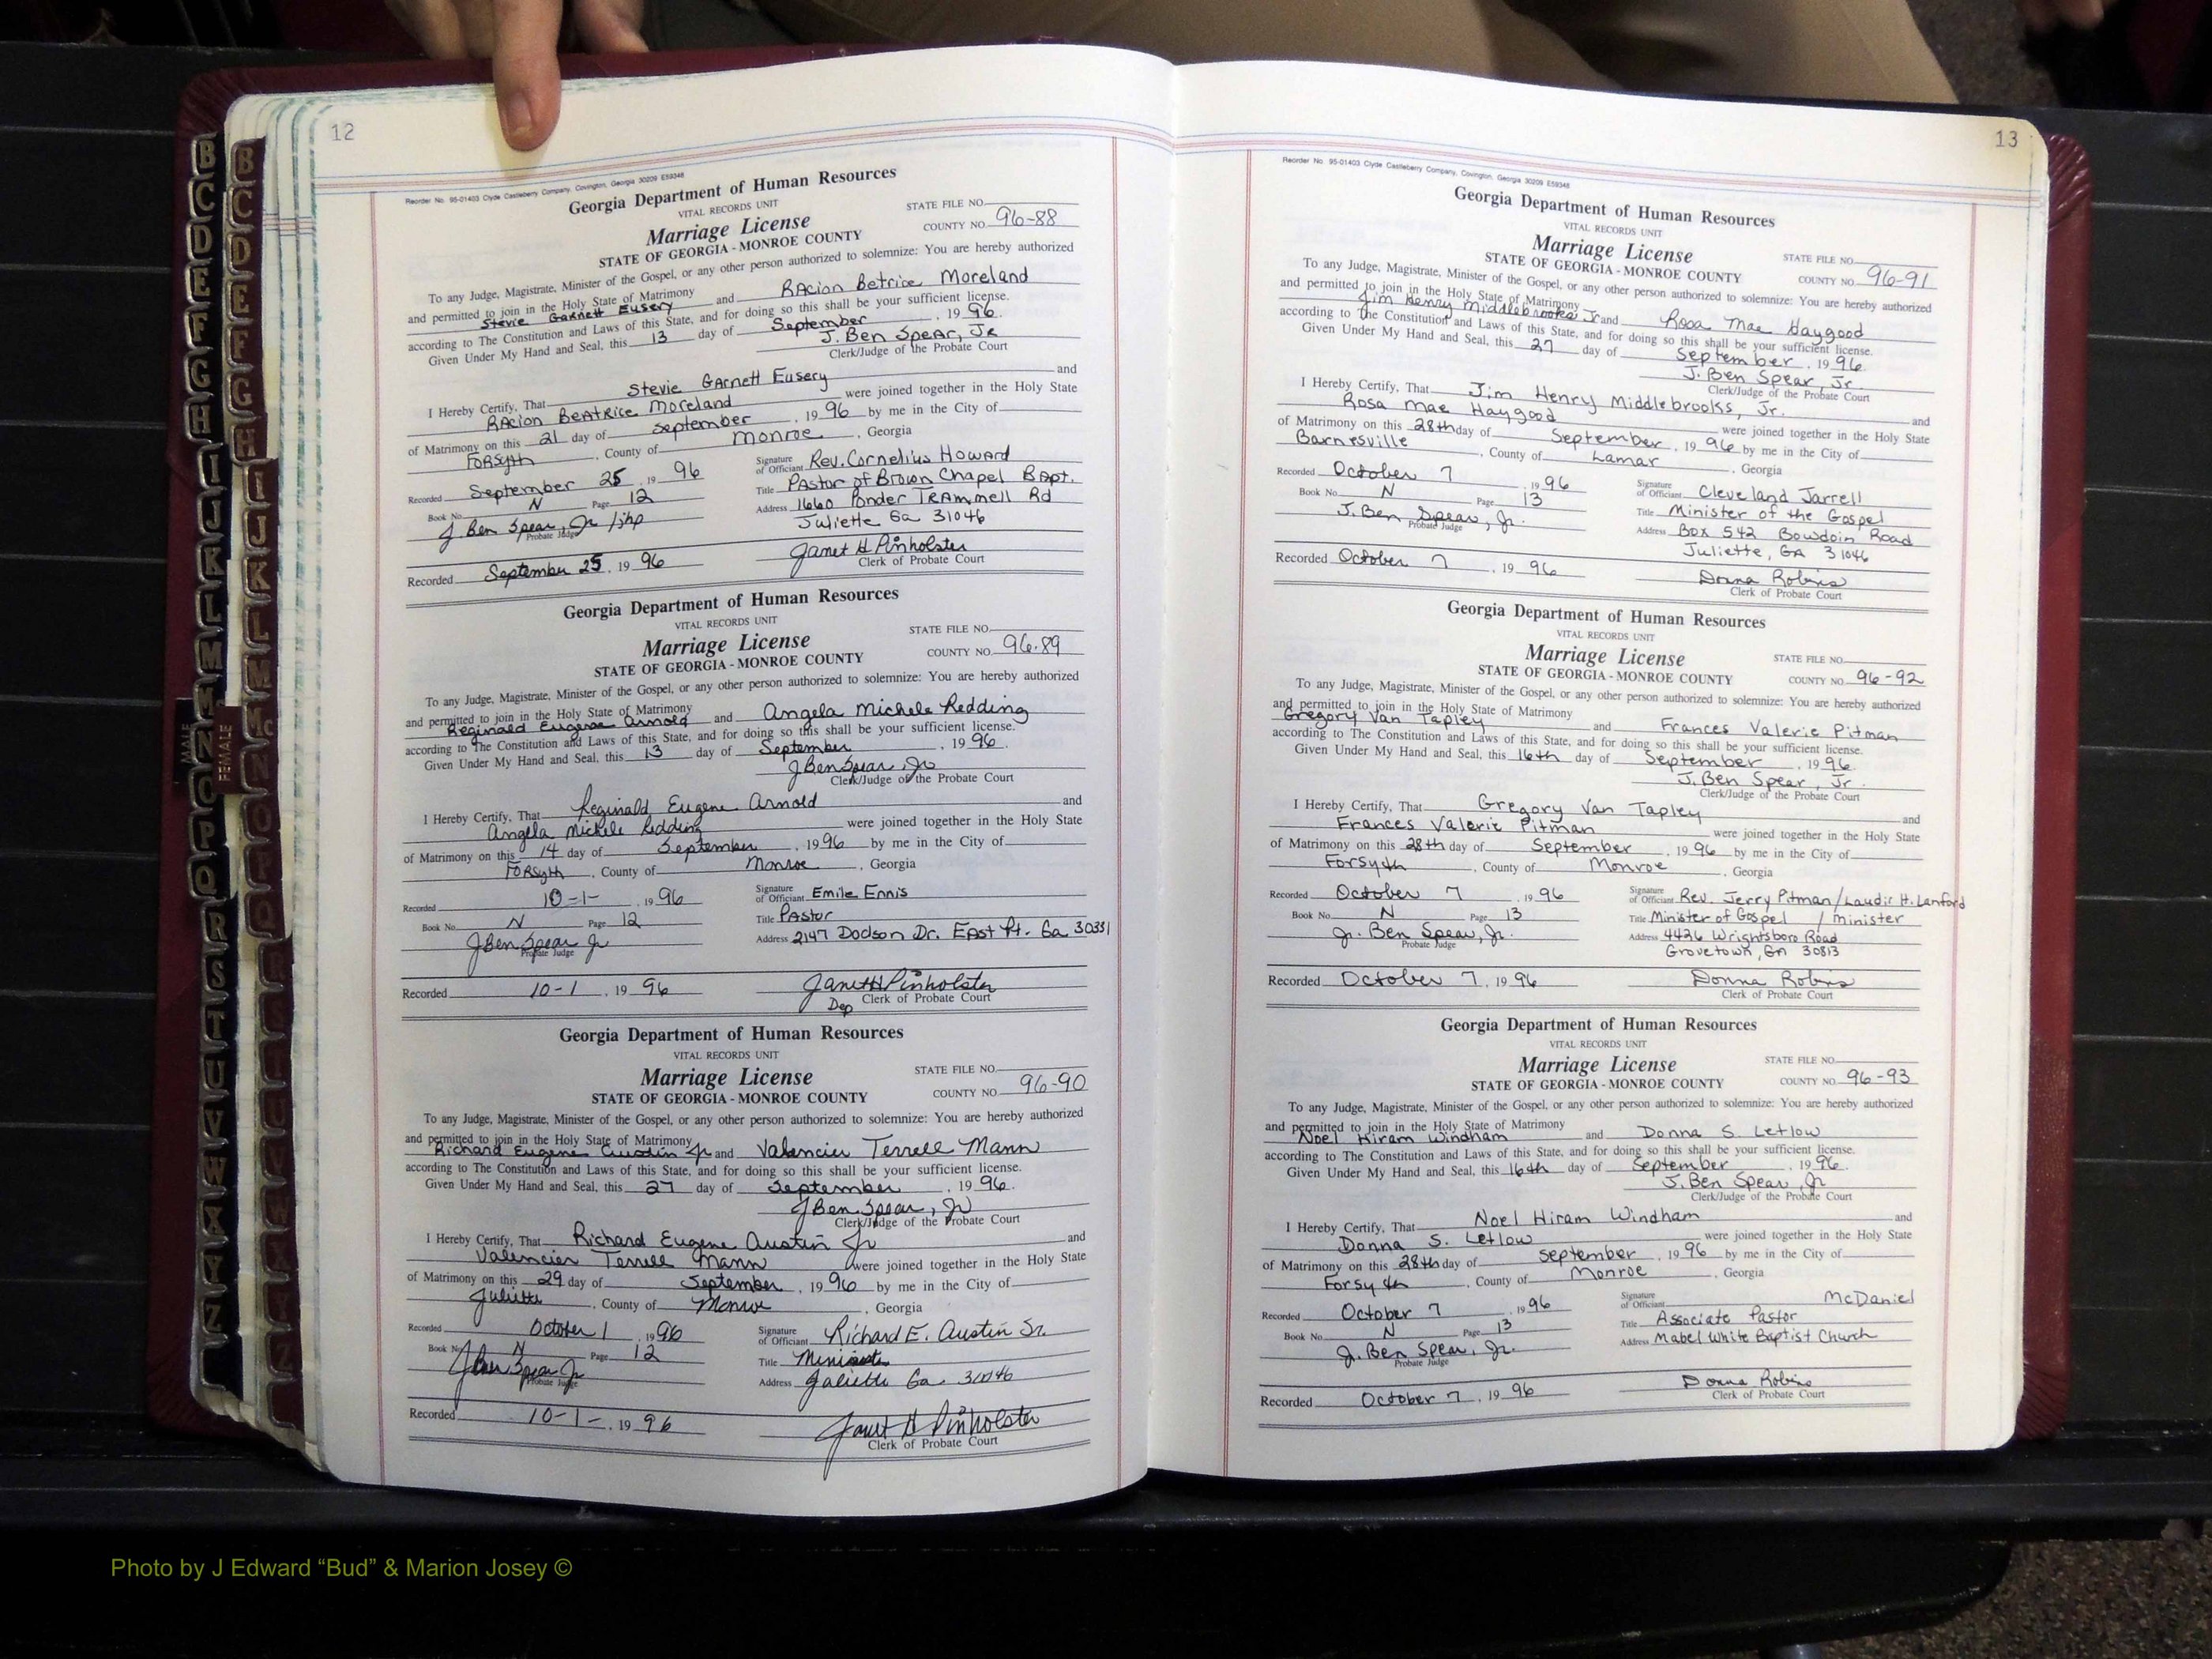 12
Reorder No. 95-01403 Clyde Castleberry Company, Covington, Georgia 30209 E59348
Georgia Department of Human Resources
VITAL RECORDS UNIT
Marriage License
STATE OF GEORGIA - MONROE COUNTY
STATE FILE NO.
COUNTY NO. 96-88
To any Judge, Magistrate, Minister of the Gospel, or any other person authorized to solemnize: You are hereby authorized
and permitted to join in the Holy State of Matrimony
Stevie Garnett Eusery and RAcion Betrice Moreland
according to The Constitution and Laws of this State, and for doing so this shall be your sufficient license.
Given Under My Hand and Seal, this 13 day of September, 1996.
J. Ben Spear, Jr
Clerk/Judge of the Probate Court
I Hereby Certify, That Stevie GArnett Eusery and
RAcion BeAtrice Moreland were joined together in the Holy State
of Matrimony on this 21 day of September, 1996 by me in the City of
Forsyth, County of Monroe, Georgia
Recorded September 25, 1996
Book No. N Page 12
J. Ben Spear, Jr /jhp
Probate Judge
Signature of Officiant Rev. Cornelius Howard
Title PAstor of Brown Chapel BApt.
Address 1660 Ponder TRAmmell Rd
Juliette Ga 31046
Recorded September 25, 1996
Janet H Pinholster
Clerk of Probate Court
Georgia Department of Human Resources
VITAL RECORDS UNIT
Marriage License
STATE OF GEORGIA - MONROE COUNTY
STATE FILE NO.
COUNTY NO. 96-89
To any Judge, Magistrate, Minister of the Gospel, or any other person authorized to solemnize: You are hereby authorized
and permitted to join in the Holy State of Matrimony
Reginald Eugene Arnold and Angela Michele Redding
according to The Constitution and Laws of this State, and for doing so this shall be your sufficient license.
Given Under My Hand and Seal, this 13 day of September, 1996.
J Ben Spear, Jr
Clerk/Judge of the Probate Court
I Hereby Certify, That Reginald Eugene Arnold and
Angela Michele Redding were joined together in the Holy State
of Matrimony on this 14 day of September, 1996 by me in the City of
Forsyth, County of Monroe, Georgia
Recorded 10-1-, 1996
Book No. N Page 12
J Ben Spear Jr
Probate Judge
Signature of Officiant Emile Ennis
Title PAstor
Address 2147 Dodson Dr. EAst Pt. Ga 30331
Recorded 10-1, 1996
Janet H Pinholster
Dep Clerk of Probate Court
Georgia Department of Human Resources
VITAL RECORDS UNIT
Marriage License
STATE OF GEORGIA - MONROE COUNTY
STATE FILE NO.
COUNTY NO. 96-90
To any Judge, Magistrate, Minister of the Gospel, or any other person authorized to solemnize: You are hereby authorized
and permitted to join in the Holy State of Matrimony
Richard Eugene Austin Jr and Valencier Terrell Mann
according to The Constitution and Laws of this State, and for doing so this shall be your sufficient license.
Given Under My Hand and Seal, this 27 day of September, 1996.
J Ben Spear, Jr
Clerk/Judge of the Probate Court
I Hereby Certify, That Richard Eugene Austin Jr and
Valencier Terrell Mann were joined together in the Holy State
of Matrimony on this 29 day of September, 1996 by me in the City of
Juliette, County of Monroe, Georgia
Recorded October 1, 1996
Book No. N Page 12
J Ben Spear Jr
Probate Judge
Signature of Officiant Richard E. Austin Sr.
Title
Address Juliette Ga. 31046
Recorded 10-1-, 1996
Janet H Pinholster
Clerk of Probate Court
13
Reorder No. 95-01403 Clyde Castleberry Company, Covington, Georgia 30209 E59348
Georgia Department of Human Resources
VITAL RECORDS UNIT
Marriage License
STATE OF GEORGIA - MONROE COUNTY
STATE FILE NO.
COUNTY NO. 96-91
To any Judge, Magistrate, Minister of the Gospel, or any other person authorized to solemnize: You are hereby authorized
and permitted to join in the Holy State of Matrimony
Jim Henry Middlebrooks Jr and Rosa Mae Haygood
according to The Constitution and Laws of this State, and for doing so this shall be your sufficient license.
Given Under My Hand and Seal, this 27 day of September, 1996.
J. Ben Spear, Jr.
Clerk/Judge of the Probate Court
I Hereby Certify, That Jim Henry Middlebrooks, Jr. and
Rosa Mae Haygood were joined together in the Holy State
of Matrimony on this 28th day of September, 1996 by me in the City of
Barnesville, County of Lamar, Georgia
Recorded October 7, 1996
Book No. N Page 13
J. Ben Spear, Jr.
Probate Judge
Signature of Officiant Cleveland Jarrell
Title Minister of the Gospel
Address Box 542 Bowdoin Road
Juliette, GA 31046
Recorded October 7, 1996
Donna Robins
Clerk of Probate Court
Georgia Department of Human Resources
VITAL RECORDS UNIT
Marriage License
STATE OF GEORGIA - MONROE COUNTY
STATE FILE NO.
COUNTY NO. 96-92
To any Judge, Magistrate, Minister of the Gospel, or any other person authorized to solemnize: You are hereby authorized
and permitted to join in the Holy State of Matrimony
Gregory Van Tapley and Frances Valerie Pitman
according to The Constitution and Laws of this State, and for doing so this shall be your sufficient license.
Given Under My Hand and Seal, this 16th day of September, 1996.
J. Ben Spear, Jr.
Clerk/Judge of the Probate Court
I Hereby Certify, That Gregory Van Tapley and
Frances Valerie Pitman were joined together in the Holy State
of Matrimony on this 28th day of September, 1996 by me in the City of
Forsyth, County of Monroe, Georgia
Recorded October 7, 1996
Book No. N Page 13
J. Ben Spear, Jr.
Probate Judge
Signature of Officiant Rev. Jerry Pitman/Laudir H. Lanford
Title Minister of Gospel / minister
Address 4436 Wrightsboro Road
Grovetown, GA 30813
Recorded October 7, 1996
Donna Robins
Clerk of Probate Court
Georgia Department of Human Resources
VITAL RECORDS UNIT
Marriage License
STATE OF GEORGIA - MONROE COUNTY
STATE FILE NO.
COUNTY NO. 96-93
To any Judge, Magistrate, Minister of the Gospel, or any other person authorized to solemnize: You are hereby authorized
and permitted to join in the Holy State of Matrimony
Noel Hiram Windham and Donna S. Letlow
according to The Constitution and Laws of this State, and for doing so this shall be your sufficient license.
Given Under My Hand and Seal, this 16th day of September, 1996.
J. Ben Spear, Jr
Clerk/Judge of the Probate Court
I Hereby Certify, That Noel Hiram Windham and
Donna S. Letlow were joined together in the Holy State
of Matrimony on this 28th day of September, 1996 by me in the City of
Forsyth, County of Monroe, Georgia
Recorded October 7, 1996
Book No. N Page 13
J. Ben Spear, Jr.
Probate Judge
Signature of Officiant McDaniel
Title Associate Pastor
Address Mabel White Baptist Church
Recorded October 7, 1996
Donna Robins
Clerk of Probate Court
MALE
FEMALE
B C D E F G H I J K L M Mc N O P Q R S T U V W X Y Z
Photo by J Edward “Bud” & Marion Josey ©